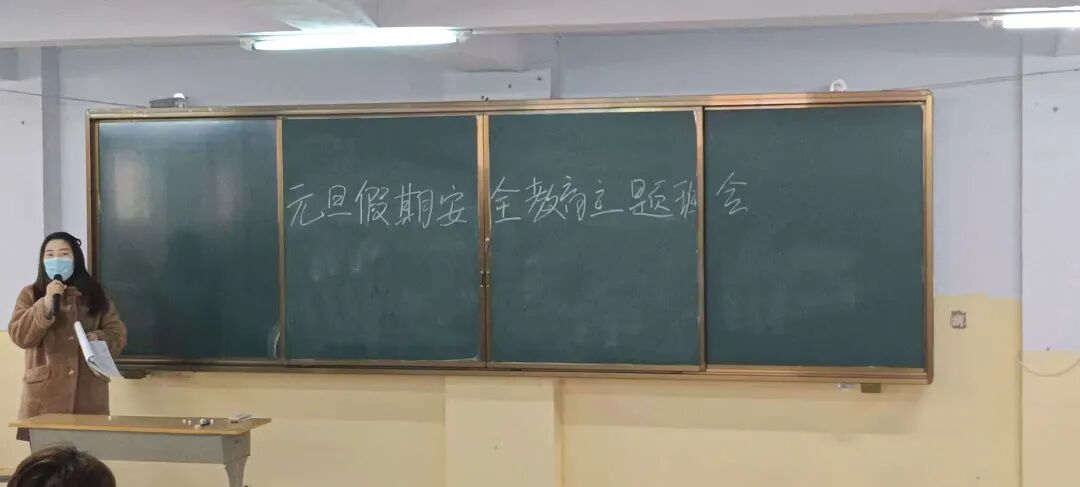 元旦假期安全教育主题班会